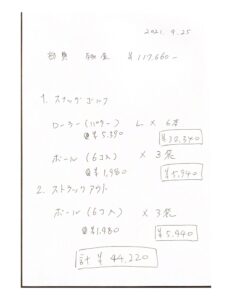 2021.9.25
部費 残金 ¥117,660-
1. スナッグゴルフ
ローラー(パター) L × 6本
@¥5,390 ¥32,340
ボール(6コ入) × 3袋
@¥1,980 ¥5,940
2. ストラックアウト
ボール(6コ入) × 3袋
@¥1,980 ¥5,940
計 ¥44,220